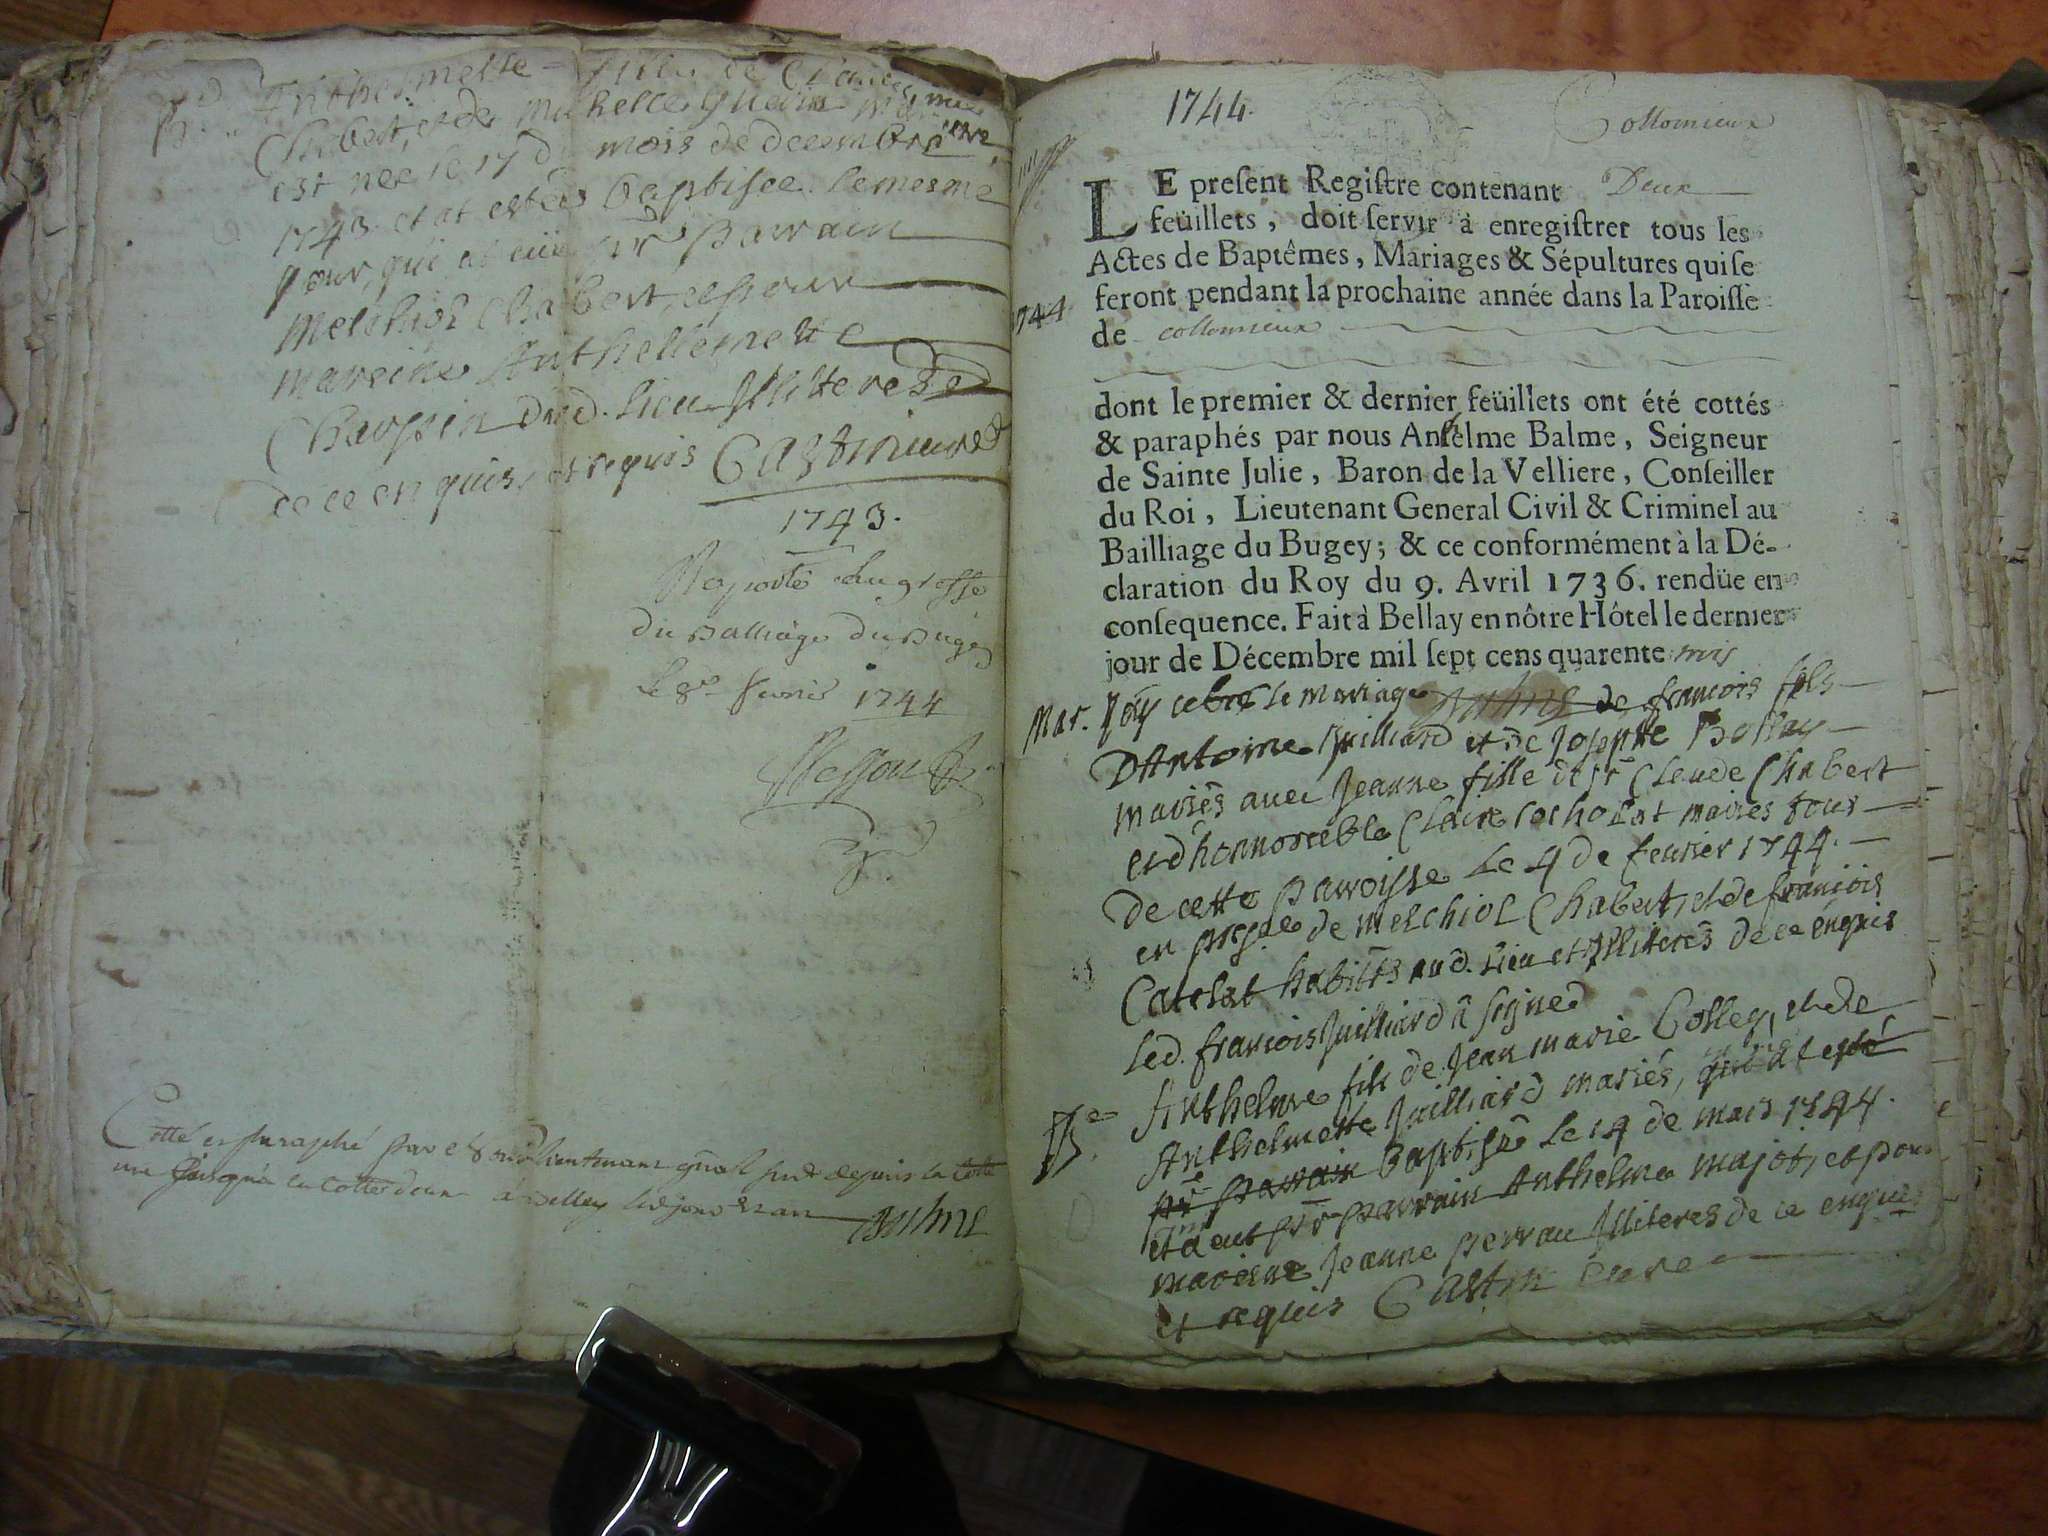 Anthelmette fille de Claude
Chabert, et de Michelle Guerin mariés
est nee le 17 du mois de decembre
1743 et at estée baptisee le mesme
jour, qui at eüe pr parrain
Melchiol Chabert, et pour
mareine Anthellemette
Chaussin dud. lieu Illiteres
de ce enquis, et requis
1743.
Raporté au greffe
du Balliage du Bugey
le 8e fevrier 1744
Cotté et paraphé par
1744.
Collomieux
LE present Registre contenant Deux
feüillets, doit servir à enregistrer tous les
Actes de Baptêmes, Mariages & Sépultures qui se
feront pendant la prochaine année dans la Paroisse
1744
de collomieux
dont le premier & dernier feüillets ont été cottés
& paraphés par nous Anthelme Balme, Seigneur
de Sainte Julie, Baron de la Velliere, Conseiller
du Roi, Lieutenant General Civil & Criminel au
Bailliage du Bugey; & ce conformément à la Dé-
claration du Roy du 9. Avril 1736. rendüe en
consequence. Fait à Bellay en nôtre Hôtel le dernier
jour de Décembre mil sept cens quarente trois
Mar. J'ay celebré le mariage de françois fils
D'Antoine Juilliard et de Josephte Bollay
mariés avec Jeanne fille de sr Claude Chabert
et d'honnorable Claire Cochonat mariés tous
de cette parroisse le 4 de feuvrier 1744.
en presce de Melchiol Chabert, et de françois
Catelat habitts aud. lieu et Illiterés de ce enquis
led. françois Juilliard â signed
Anthelme fils de Jean marie Colley, et de
Anthelmette Juilliard mariés, qui at esté
pr parrain baptisé le 14 de mars 1744.
et a eut pr parrain Anthelme majot, et pour
mareine Jeanne perrau Illiteres de ce enquis
et requis Castin Curé